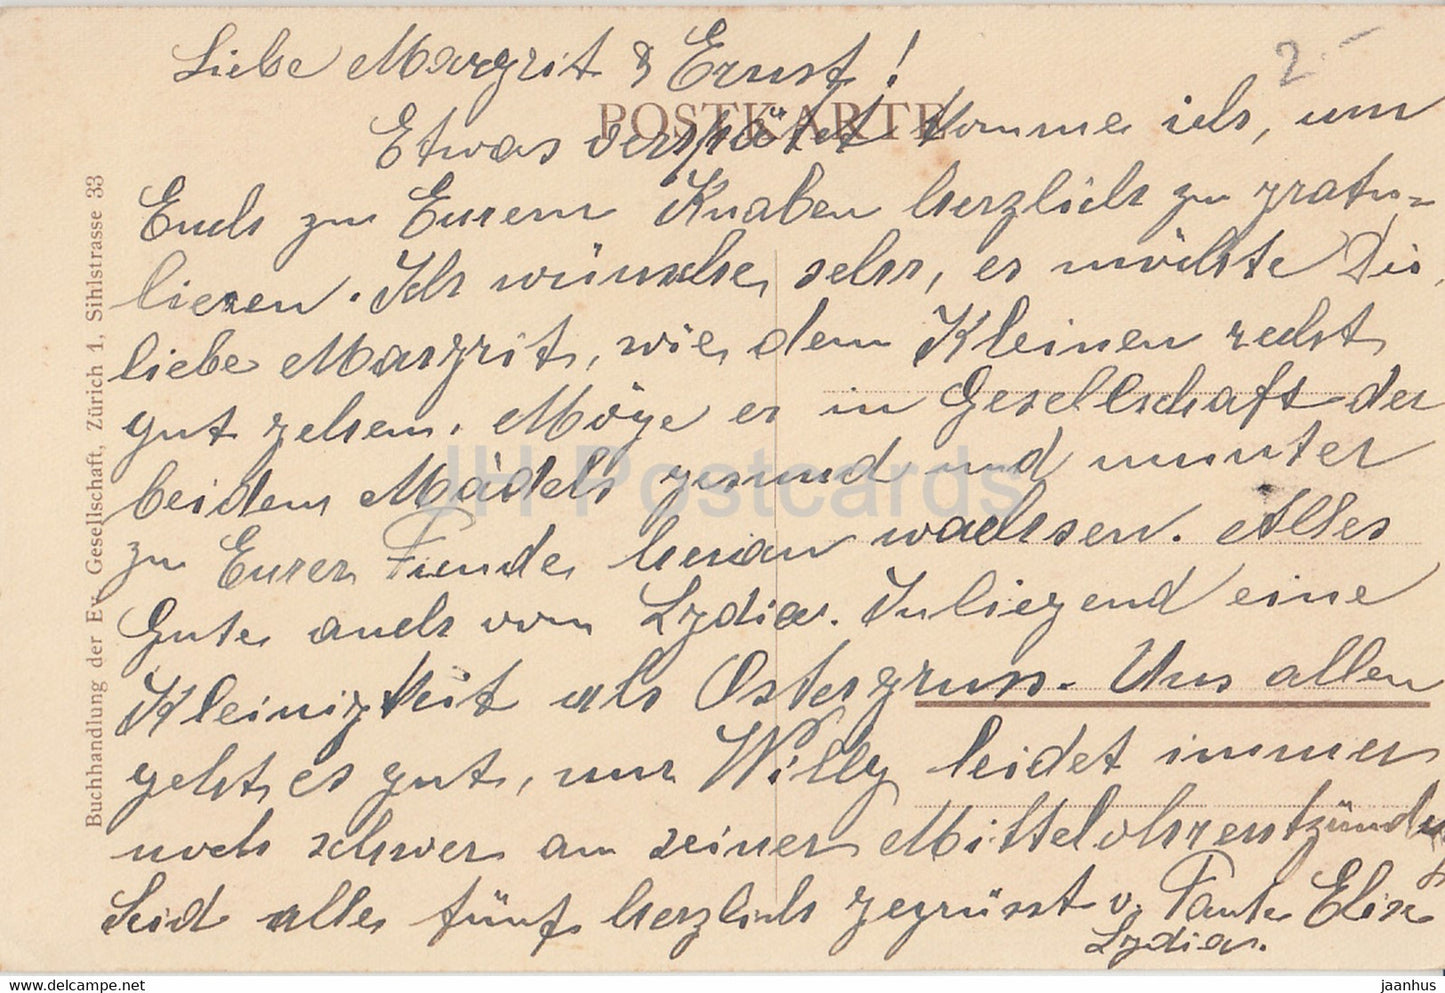 2.-
Liebe Margrit & Ernst!
POSTKARTE
Etwas verspätet komme ich, um
Euch zu Eurem Knaben herzlich zu gratu=
lieren. Ich wünsche sehr, es möchte Dir,
liebe Margrit, wie dem Kleinen recht
gut gehen. Möge er in Gesellschaft der
beiden Mädels gesund und munter
zu Eurer Freude heran wachsen. Alles
Gute auch von Lydia. Inliegend eine
Kleinigkeit als Ostergruss. Uns allen
geht es gut, nur Willy leidet immer
noch schwer an seiner Mittelohrentzündung
Seid alle fünf herzlich gegrüsst v. Tante Elise
Lydia.
Buchhandlung der Ev. Gesellschaft, Zürich 1, Sihlstrasse 33
JH Postcards
www.jhpostcards.com
jaanhus